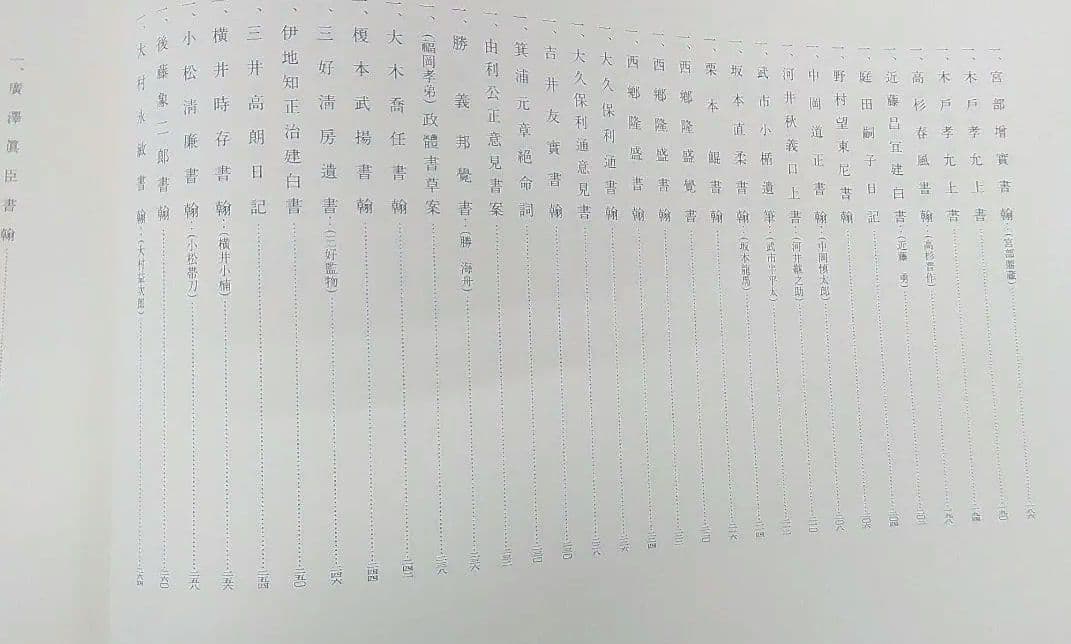 一、宮部增實書翰(宮部鼎蔵)……一八六
一、木戶孝允上書……一九〇
一、木戶孝允上書……一九四
一、高杉春風書翰(高杉晋作)……一九八
一、近藤昌宜建白書(近藤勇)……二〇二
一、庭田嗣子日記……二〇四
一、野村望東尼書翰……二〇六
一、中岡道正書翰(中岡慎太郎)……二〇八
一、河井秋義口上書(河井繼之助)……二一〇
一、武市小楯遺筆(武市半平太)……二一二
一、坂本直柔書翰(坂本龍馬)……二一四
一、栗本鯤書翰……二一六
一、西鄕隆盛覺書……二二〇
一、西鄕隆盛書翰……二二二
一、西鄕隆盛書翰……二二四
一、大久保利通書翰……二二六
一、大久保利通意見書……二二八
一、吉井友實書翰……二三〇
一、箕浦元章絕命詞……二三〇
一、由利公正意見書案……二三二
一、勝義邦覺書(勝海舟)……二三六
一、(福岡孝弟)政體書草案……二三八
一、大木喬任書翰……二四二
一、榎本武揚書翰……二四四
一、三好淸房遺書(三好監物)……二四六
一、伊地知正治建白書……二五〇
一、三井高朗日記……二五四
一、横井時存書翰(横井小楠)……二五六
一、小松淸廉書翰(小松帶刀)……二五八
一、後藤象二郎書翰……二六〇
一、大村永敏書翰(大村益次郎)……二六四
一、廣澤眞臣書翰……